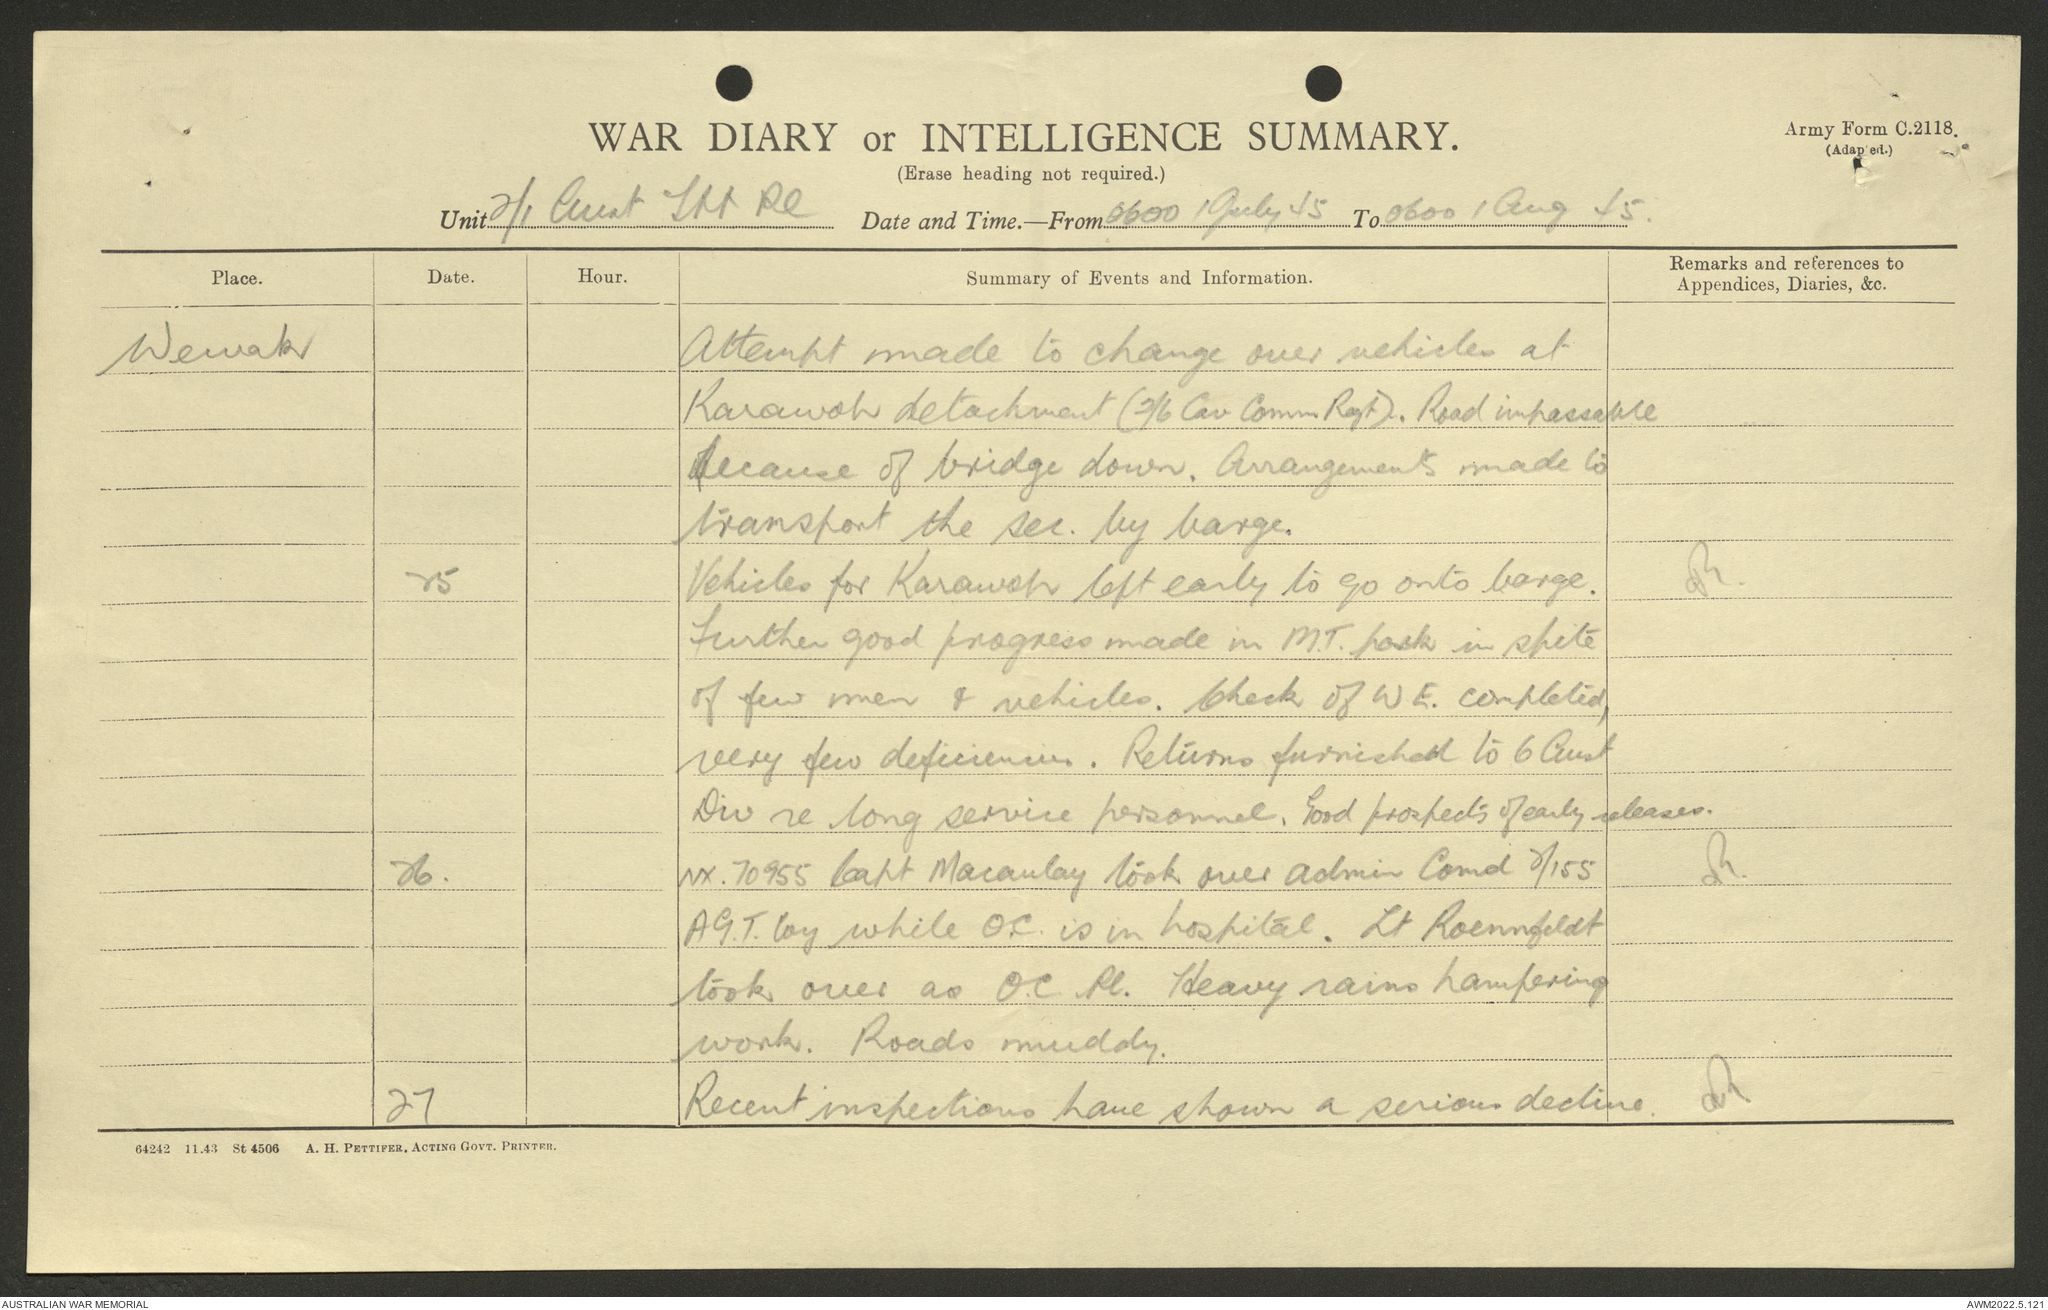 WAR DIARY or INTELLIGENCE SUMMARY.
Army Form C.2118.
(Adapted.)
(Erase heading not required.)
Unit 2/1 Aust Pl Date and Time.—From 0600 1 July 45 To 0600 1 Aug 45.
Place. Date. Hour. Summary of Events and Information. Remarks and references to
Appendices, Diaries, &c.
Wewak Attempt made to change over vehicles at
Karawop detachment (2/6 Cav Comm Regt). Road impassable
because of bridge down. Arrangements made to
transport the sec. by barge.
25 Vehicles for Karawop left early to go onto barge.
Further good progress made in M.T. park in spite
of few men & vehicles. Check of W E. completed,
very few deficiencies. Returns furnished to 6 Aust
Div re long service personnel. Good prospects of early releases.
26. NX.70955 Capt Macaulay took over admin Comd 2/155
A.G.T. Coy while O.C. is in hospital. Lt Roennfeldt
took over as O.C Pl. Heavy rains hampering
work. Roads muddy.
27 Recent inspections have shown a serious decline.
64242 11.43 St 4506 A. H. PETTIFER, ACTING GOVT. PRINTER.
AUSTRALIAN WAR MEMORIAL
AWM2022.5.121